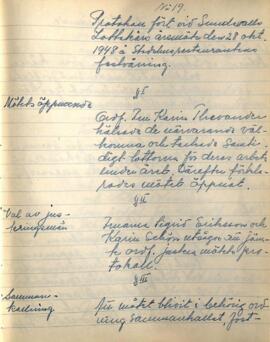 No 19.
Protokoll fört vid Sundsvalls
Lottakårs årsmöte den 28 okt.
1948 å Stadshusrestaurantens
festvåning.
§ I
Mötets öppnande
Ordf. Fru Karin Thevander
hälsade de närvarande väl-
komna och tackade sam-
tidigt lottorna för deras arbete
under året. Därefter förkla-
rades mötet öppnat.
§ II
Val av jus-
teringsmän
Fruarna Sigrid Eriksson och
Karin utsågos att jäm-
te ordf. justera mötets pro-
tokoll.
§ III
Samman-
kallning
Att mötet blivit i behörig ord-
ning sammankallat, fast-